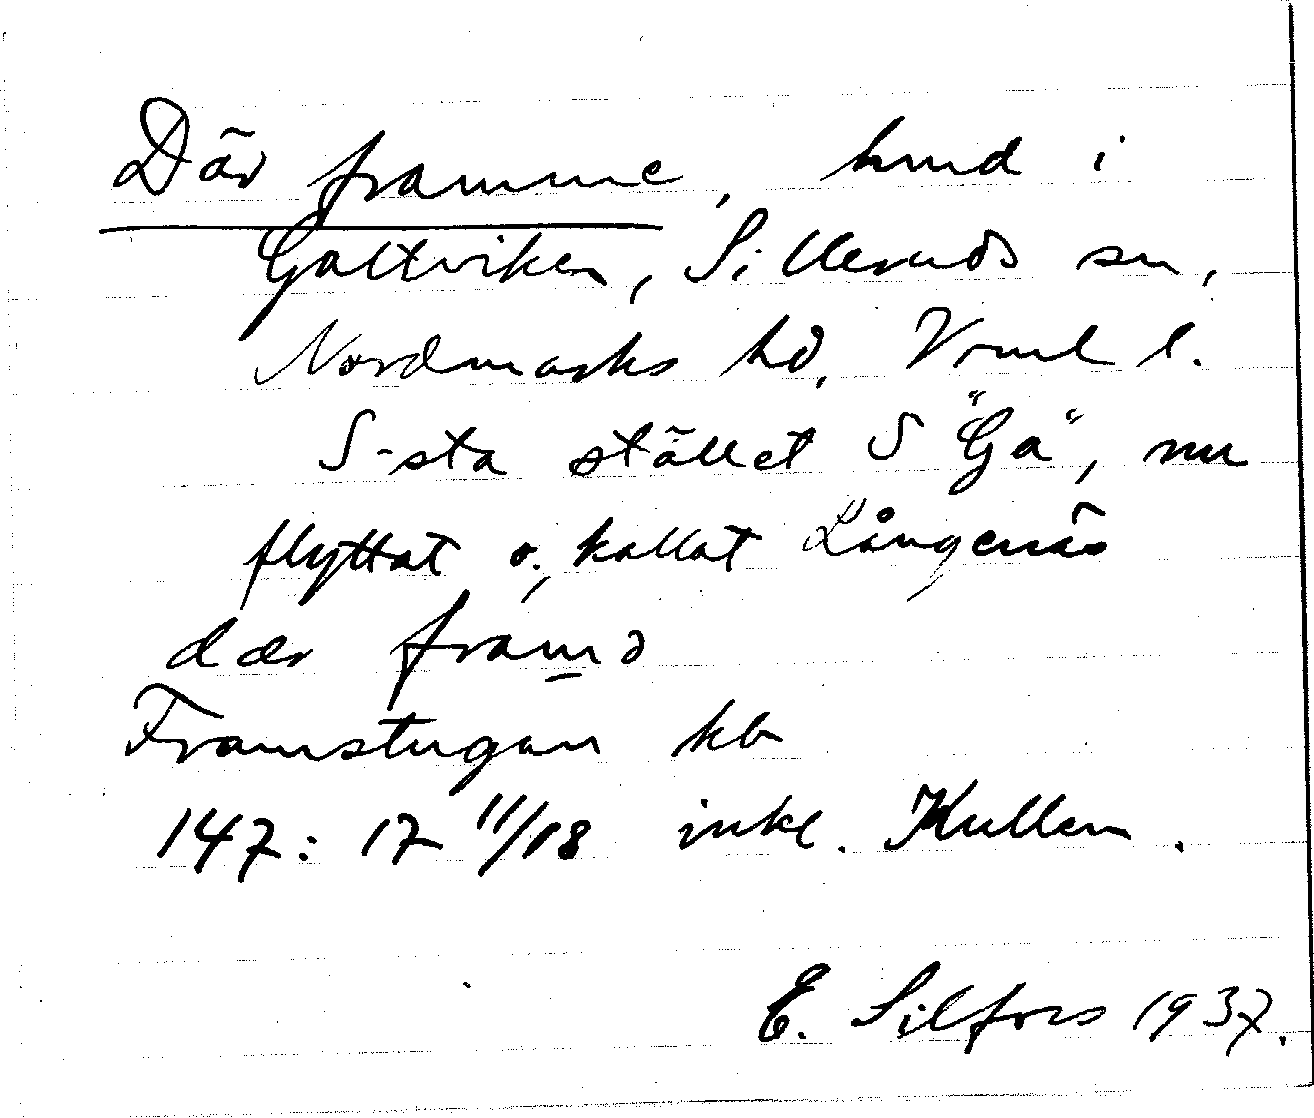 Där framme, hmd i
Galtviken, Silleruds sn,
Nordmarks hd, Vrml l.
S-sta stället S "Ga", nu
flyttat o. kallat Långenäs
dær framə
Framstugan kb
147: 17 11/18 inkl. Kullen.
E. Silfors 1937.